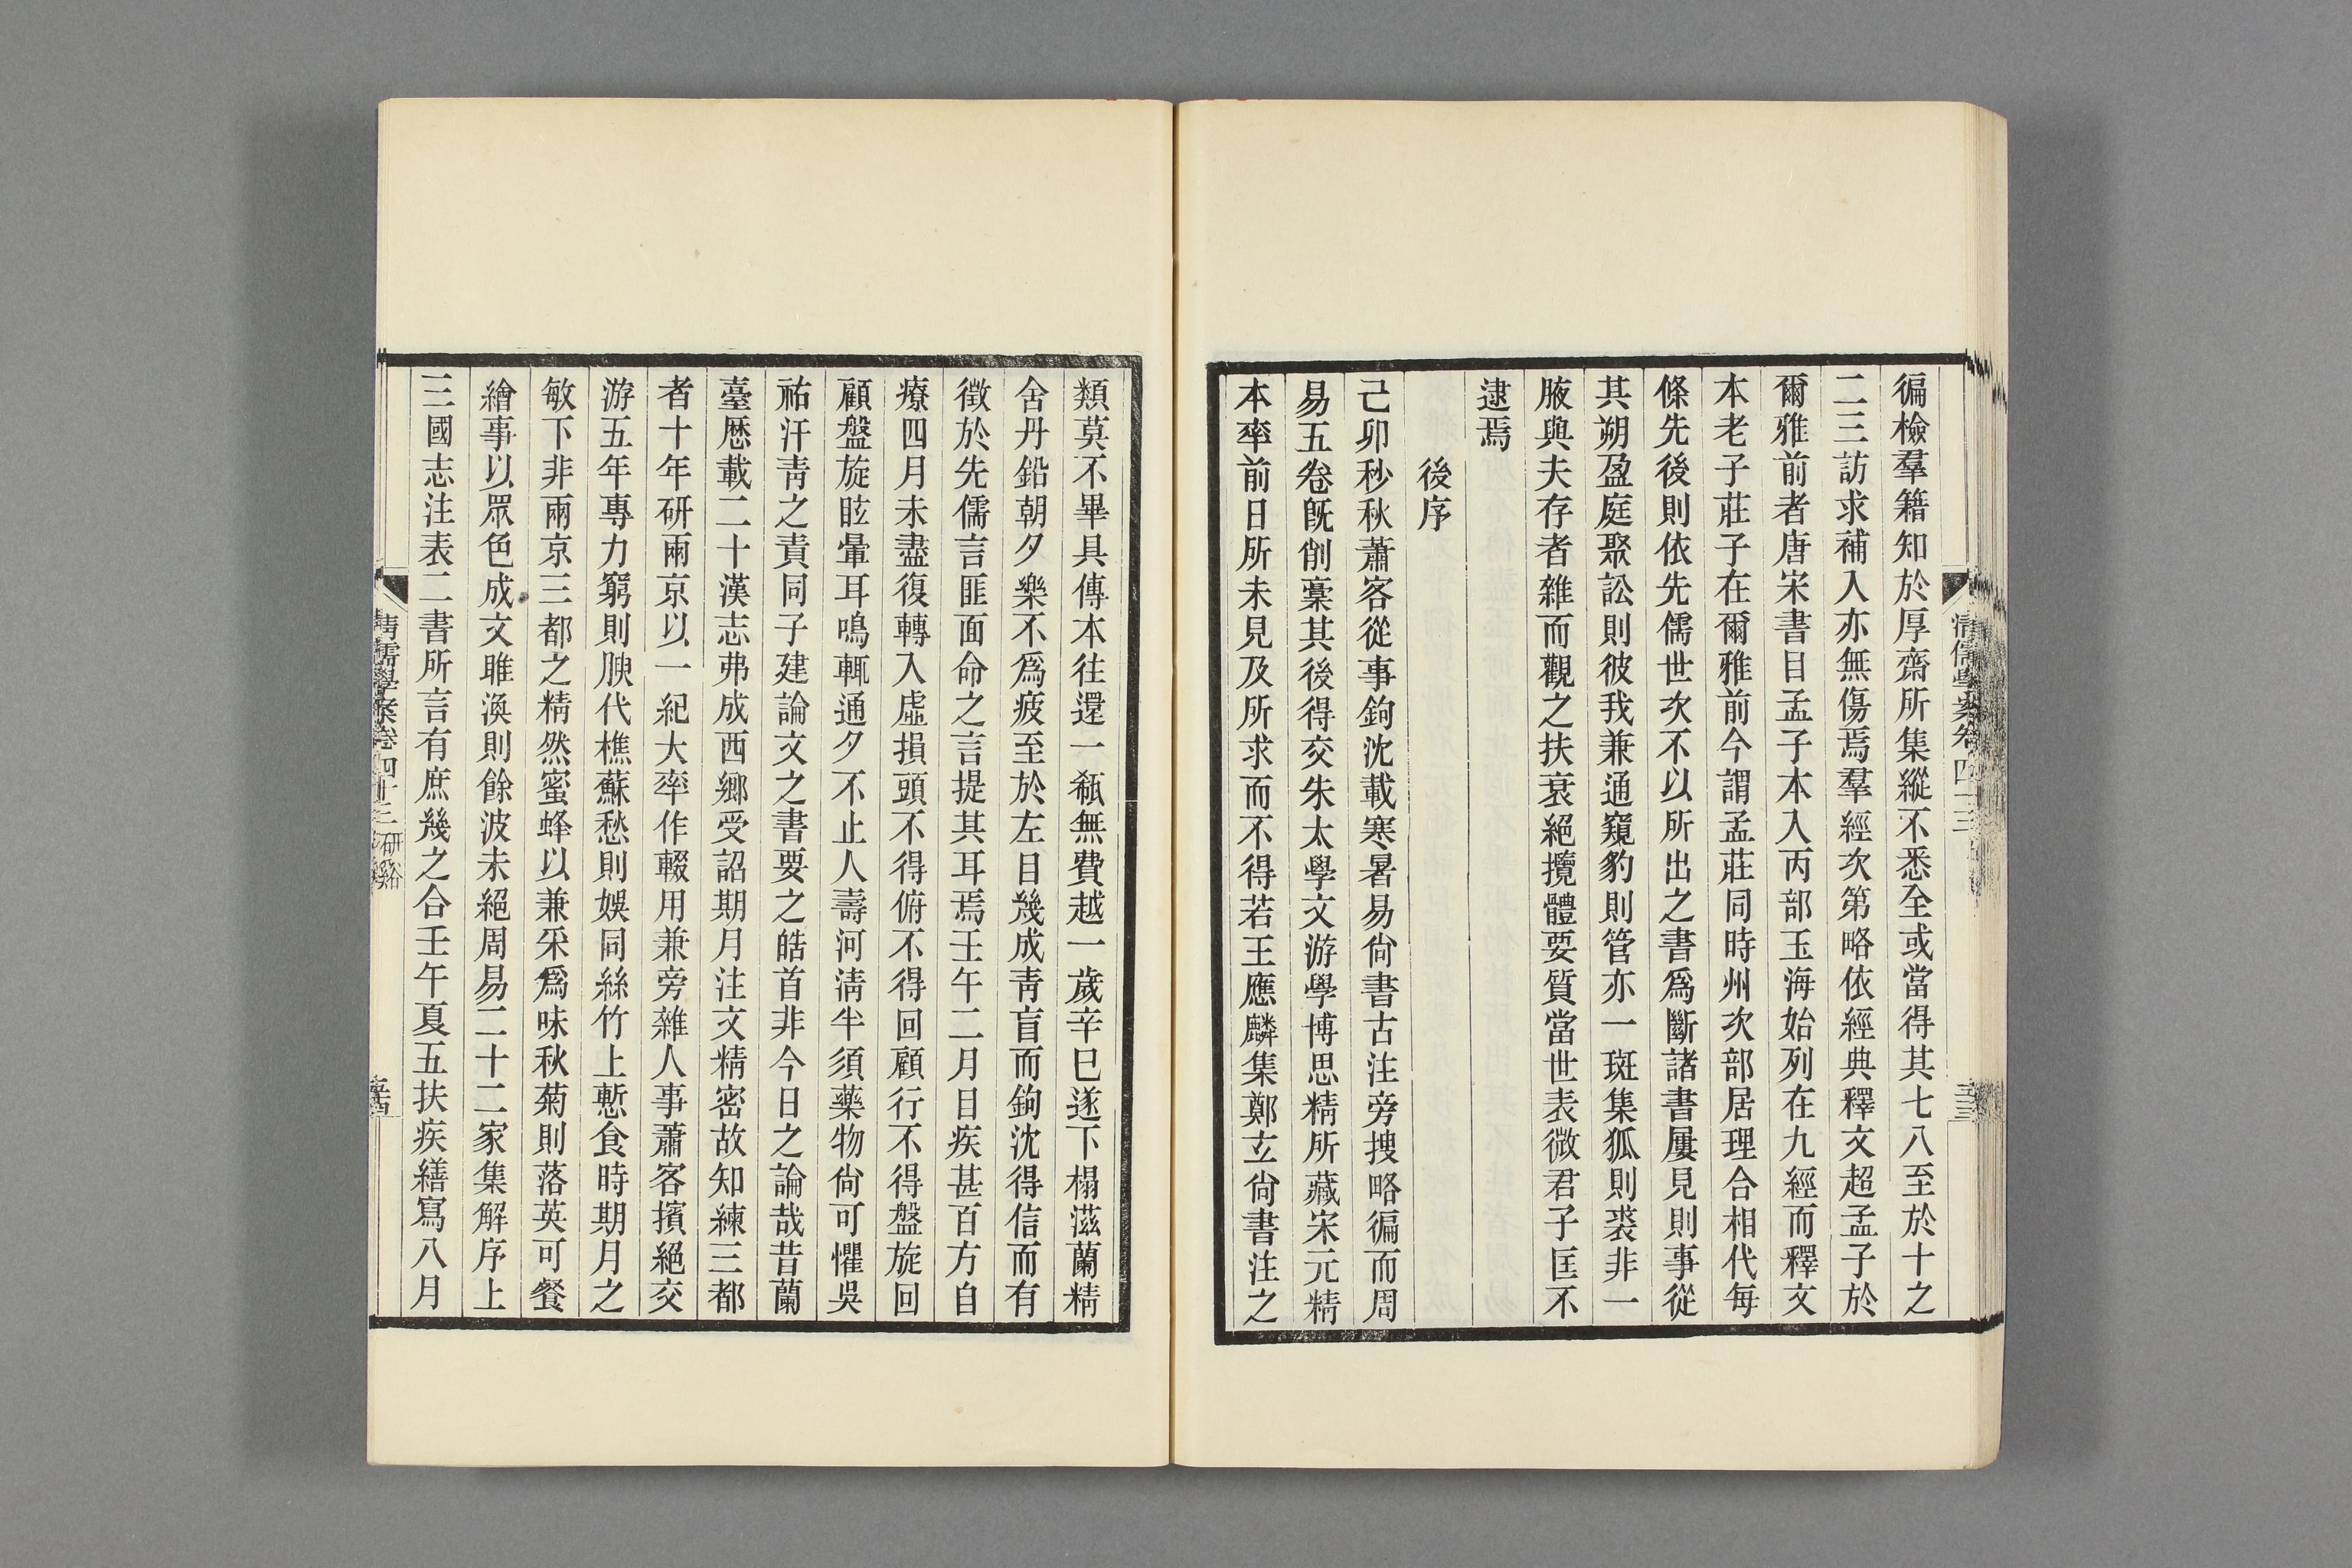 徧檢羣籍知於厚齋所集縱不悉全或當得其七八至於十之
二三訪求補入亦無傷焉羣經次第略依經典釋文超孟子於
爾雅前者唐宋書目孟子本入丙部玉海始列在九經而釋文
本老子莊子在爾雅前今謂孟莊同時州次部居理合相代每
條先後則依先儒世次不以所出之書爲斷諸書屢見則事從
其朔盈庭聚訟則彼我兼通窺豹則管亦一斑集狐則裘非一
腋與夫存者雜而觀之扶衰絕攬體要質當世表微君子匡不
逮焉
後序
己卯秒秋蕭客從事鉤沈載寒暑易尙書古注旁捜略徧而周
易五卷旣削稾其後得交朱太學文游學博思精所藏宋元精
本率前日所未見及所求而不得若王應麟集鄭玄尙書注之
類莫不畢具傳本往還一瓻無費越一歲辛巳遂下榻滋蘭精
舍丹鉛朝夕樂不爲疲至於左目幾成靑盲而鉤沈得信而有
徵於先儒言匪面命之言提其耳焉壬午二月目疾甚百方自
療四月未盡復轉入虛損頭不得俯不得回顧行不得盤旋回
顧盤旋眩暈耳鳴輒通夕不止人壽河淸半須藥物尙可懼吳
祐汗靑之責同子建論文之書要之皓首非今日之論哉昔蘭
臺厯載二十漢志弗成西鄉受詔期月注文精密故知練三都
者十年研兩京以一紀大率作輟用兼旁雜人事蕭客擯絕交
游五年專力窮則腴代樵蘇愁則娛同絲竹上慙食時期月之
敏下非兩京三都之精然蜜蜂以兼采爲味秋菊則落英可餐
繪事以眾色成文睢渙則餘波未絕周易二十二家集解序上
三國志注表二書所言有庶幾之合壬午夏五扶疾繕寫八月
淸儒學案卷四十三 研谿